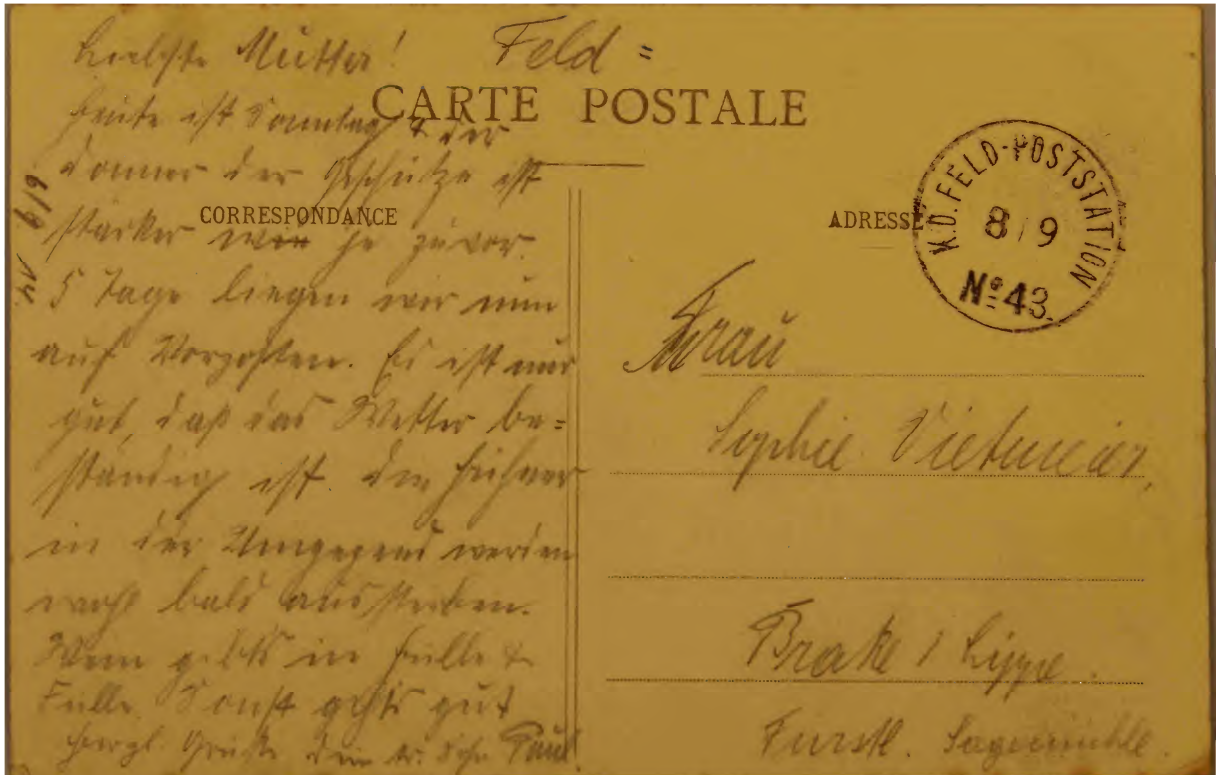 Liebste Mutter! Feld =
CARTE POSTALE
Heute ist Sonntag & der
Donner der Geschütze ist
stärker wie je zuvor.
5 Tage liegen wir nun
auf Vorposten. Es ist nur
gut, daß das Wetter be=
ständig ist. Die Hühner
in der Umgegend werden
wohl bald aussterben.
Wein gibts in Hülle &
Fülle. Sonst gehts gut
Herzl. Grüße Dein tr. Sohn Paul
6/9 14
CORRESPONDANCE
ADRESSE
K.D. FELD-POSTSTATION
8/9
Nº 43.
Frau
Sophie Vietmeier,
Brake / Lippe.
Fürstl. Sägemühle.